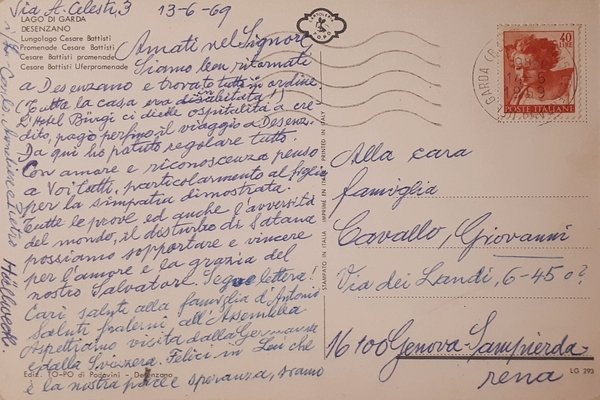 Via A. Celesti, 3 13-6-69
LAGO DI GARDA
DESENZANO
Lungolago Cesare Battisti
Promenade Cesare Battisti
Cesare Battisti promenade
Cesare Battisti Uferpromenade
Amati nel Signore
Siamo ben ritornati
a Desenzano e trovato tutto in ordine.
(Tutta la casa era disabitata)
L'Hotel ci diede ospitalità a cre-
dito, pagò perfino il viaggio a Desenz.
Da qui ho potuto regolare tutto.
Con amore e riconoscenza penso
a Voi tutti, particolarmente al figlio
per la simpatia dimostrata.
Tutte le prove ed anche l'avversità
del mondo, il disturbo di Satana
possiamo sopportare e vincere
per l'amore e la grazia del
nostro Salvatore. Segue lettera!
Cari saluti alla famiglia d'Antonio
Saluti fraterni all'Assemblea
Aspettiamo visita dalla Germania
e dalla Svizzera. Felici in Lui che
è la nostra pace e speranza, siamo
Ediz. TO-PO di Podavini - Desenzano
STAMPATO IN ITALIA IMPRIMÉ EN ITALIE PRINTED IN ITALY
40
LIRE
POSTE ITALIANE
GARDA
Alla cara
famiglia
Cavallo, Giovanni
Via dei Landi, 6-450?
16100 Genova-Sampierda-
rena
LG 293